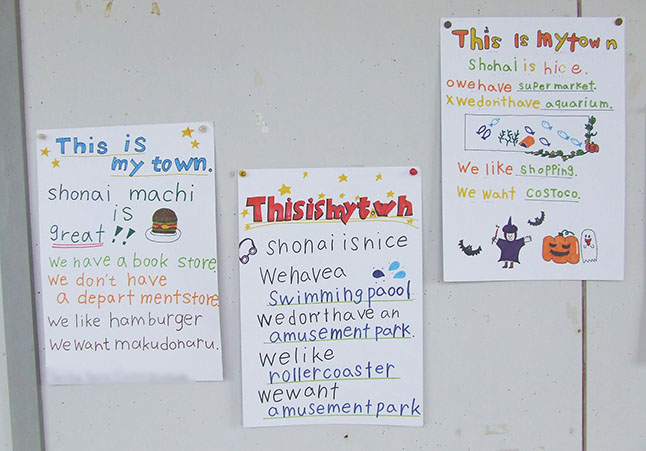 This is
my town.
shonai machi
is
great!!
we have a book store.
we don't have
a depart mentstore.
we like hamburger
we want makudonaru.
Thisismytowh
shonai isnice
wehavea
swimmingpaool
wedon'thave an
amusement park.
welike
rollercoaster
wewant
amusement park
This is mytown
shonai is nice.
owehave super market.
xwedon'thave aquarium.
We like shopping.
We want costoco.